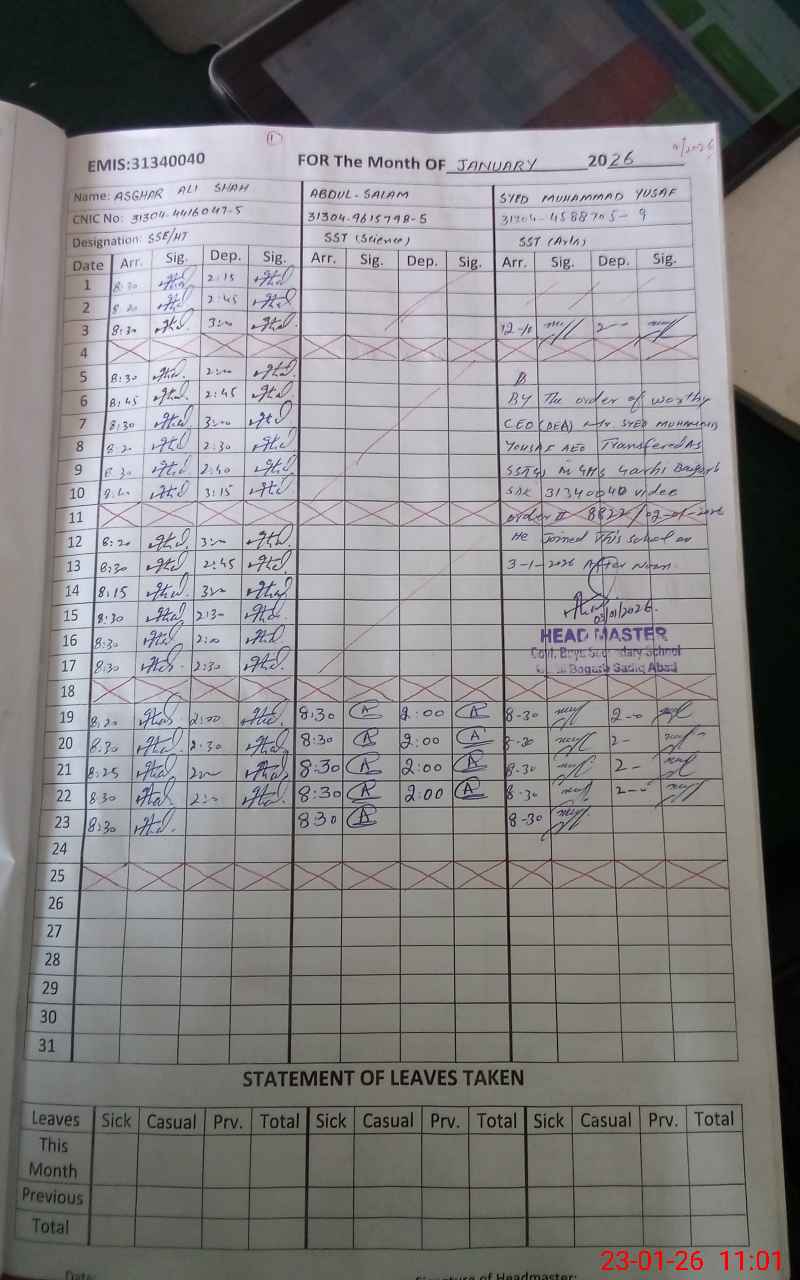 EMIS:31340040 FOR The Month OF JANUARY 2026
Name: ASGHAR ALI SHAH ABDUL-SALAM SYED MUHAMMAD YUSAF
CNIC No: 31304-4416047-5 31304-9615798-5 31304-4588705-9
Designation: SSE/HT SST (Science) SST (Arts)
Date Arr. Sig. Dep. Sig. Arr. Sig. Dep. Sig. Arr. Sig. Dep. Sig.
1 8:30 2:15
2 8:20 2:45
3 8:30 3:00 12-10 2--
4
5 8:30 2:00
6 8:45 2:45 BY The order of worthy
7 8:30 3:00 CEO (DEA) Mr. SYED MUHAMMAD
8 8:20 2:30 YOUSAF AEO Transfered As
9 8:30 2:40 in GHS Garhi Bagarh
10 3:15 SDK 31340040 videe
11 order # 8822/02-01-2026
12 8:20 3:00 He Joined This school on
13 8:30 2:45 3-1-2026 After Noon.
14 8:15 3:00
15 8:30 2:30 03/01/2026.
16 8:30 2:00 HEAD MASTER
17 8:30 2:30 Govt. Boys Secondary School
Bogarh Sadiq Abad
18
19 8:20 2:00 8:30 A 2:00 A 8-30 2--0
20 8:30 2:30 8:30 A 2:00 A 8-30 2-
21 8:25 2:00 8:30 A 2:00 A 8-30 2-
22 8:30 2:00 8:30 A 2:00 A 8-30 2--
23 8:30 8:30 A 8-30
24
25
26
27
28
29
30
31
STATEMENT OF LEAVES TAKEN
Leaves Sick Casual Prv. Total Sick Casual Prv. Total Sick Casual Prv. Total
This
Month
Previous
Total
Date: Signature of Headmaster:
23-01-26 11:01